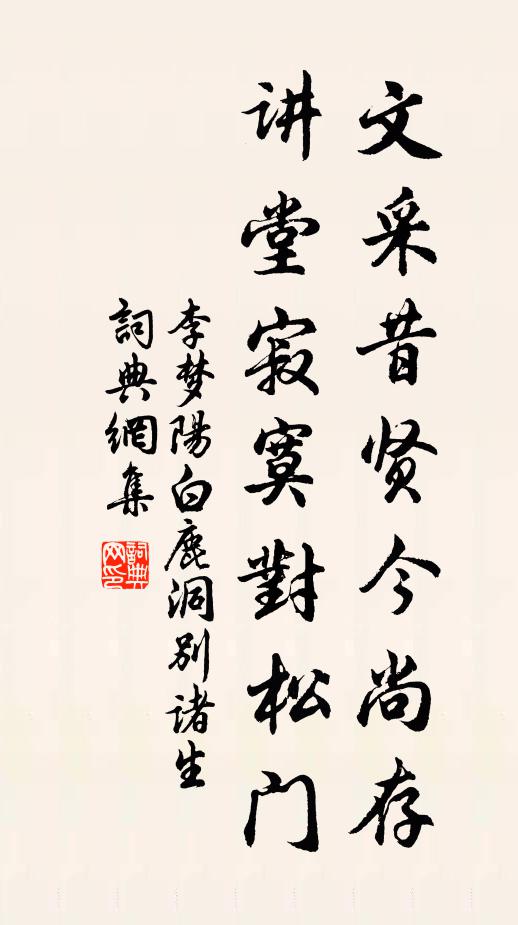 文采昔贤今尚存
讲堂寂寞對松门
李梦陽白鹿洞别诸生
詞典網集
詞典
网印